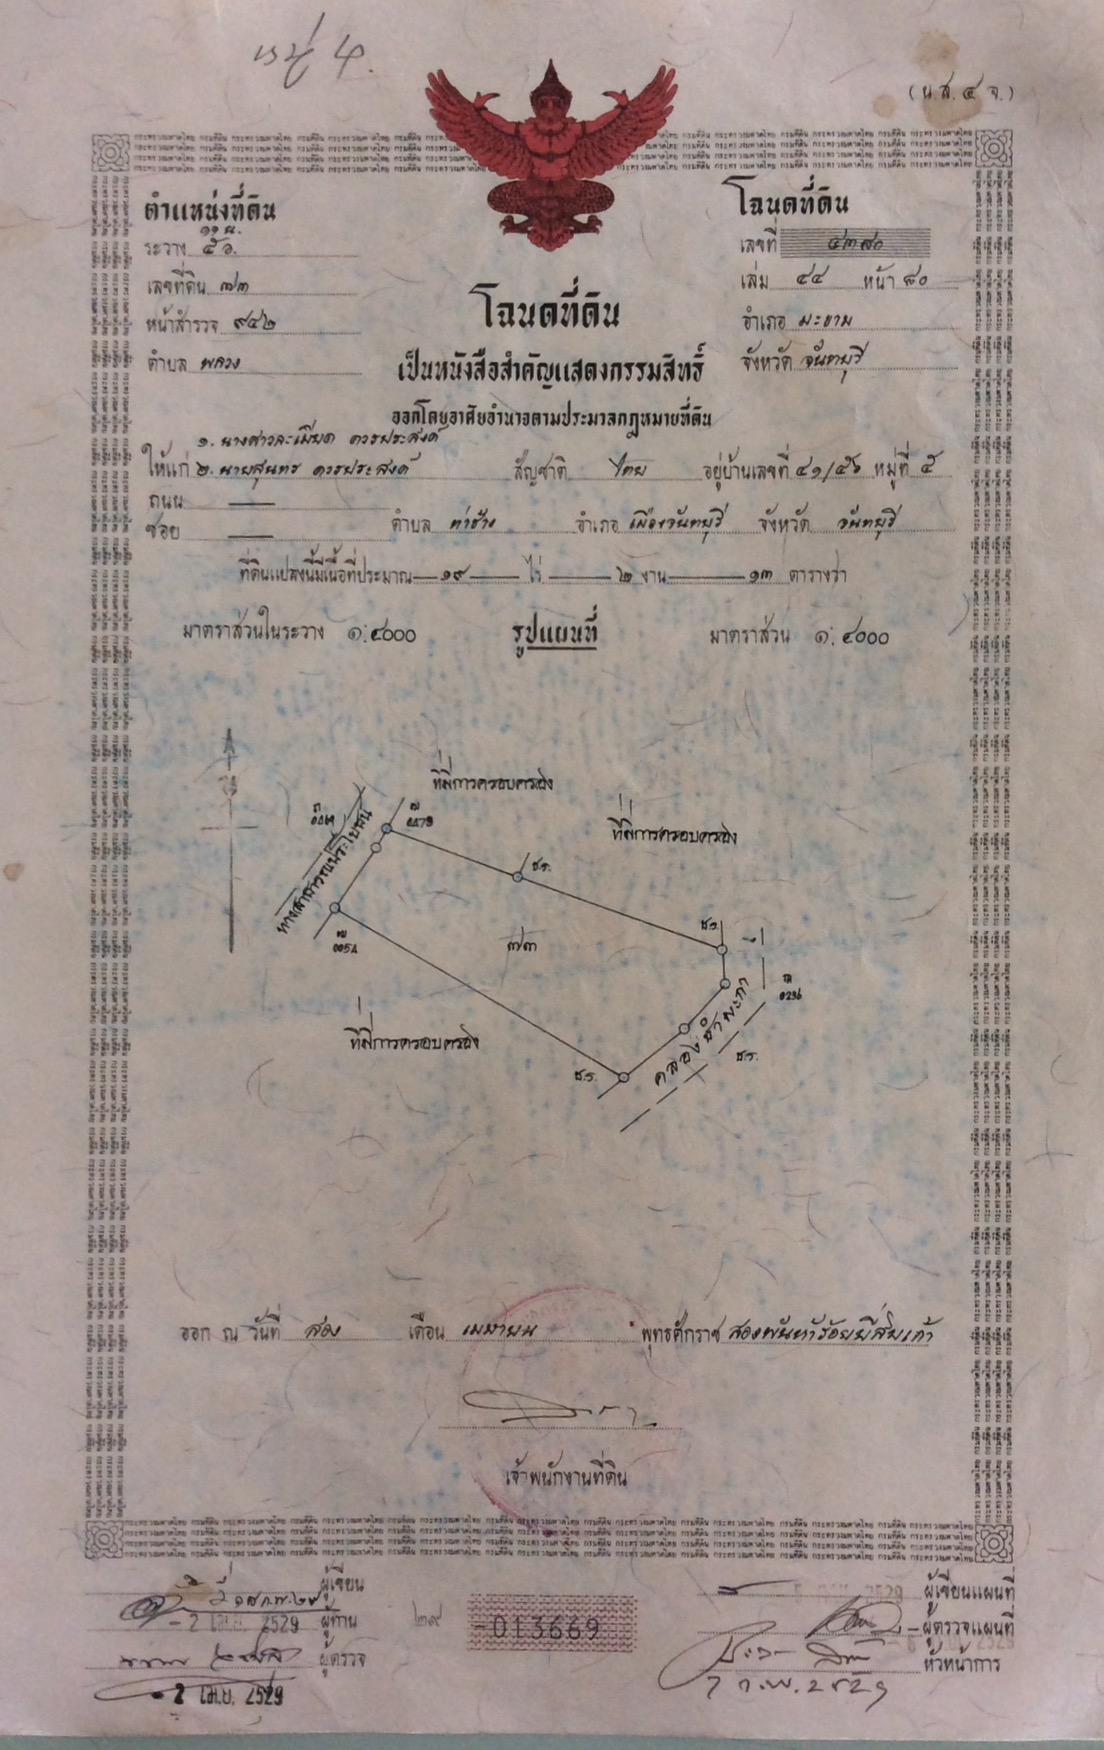 หมู่ ๕.
(น.ส.๔ จ.)
ตำแหน่งที่ดิน
ระวาง ๕๖.
เลขที่ดิน ๗๓
หน้าสำรวจ ๙๔๒
ตำบล พลวง
โฉนดที่ดิน
เลขที่ ๔๓๙๐
เล่ม ๔๔ หน้า ๙๐
อำเภอ มะขาม
จังหวัด จันทบุรี
โฉนดที่ดิน
เป็นหนังสือสำคัญแสดงกรรมสิทธิ์
ออกโดยอาศัยอำนาจตามประมวลกฎหมายที่ดิน
๑. นางสาวละเมียด ควรประสงค์
ให้แก่ ๒. นายสุนทร ควรประสงค์ สัญชาติ ไทย อยู่บ้านเลขที่ ๔๑/๕๖ หมู่ที่ ๕
ถนน
ซอย ตำบล ท่าช้าง อำเภอ เมืองจันทบุรี จังหวัด จันทบุรี
ที่ดินแปลงนี้มีเนื้อที่ประมาณ ๑๙ ไร่ ๒ งาน ๑๓ ตารางวา
มาตราส่วนในระวาง ๑:๔๐๐๐ รูปแผนที่ มาตราส่วน ๑:๔๐๐๐
ที่มีการครอบครอง
ที่มีการครอบครอง
ทางสาธารณประโยชน์
ช.ร.
ช.ร.
๗๓
ที่มีการครอบครอง
ช.ร.
ช.ร.
ออก ณ วันที่ สอง เดือน เมษายน พุทธศักราช สองพันห้าร้อยยี่สิบเก้า
เจ้าพนักงานที่ดิน
ผู้เขียน
- 2 เม.ย. 2529 ผู้ทาน
ผู้ตรวจ
- 2 เม.ย. 2529
๒๙ 013669
2529 ผู้เขียนแผนที่
ผู้ตรวจแผนที่
หัวหน้าการ
7 ก.พ. 2529